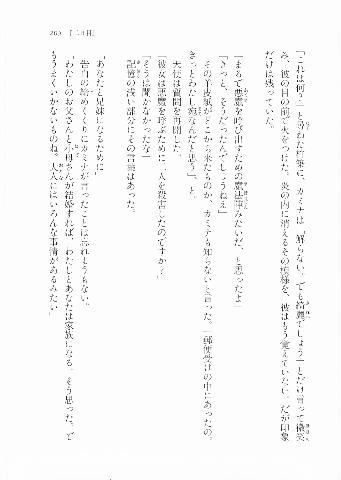 205 【二日目】
「これは何？」と尋ねた柏葉に、カミナは「解らない。でも綺麗でしょう」とだけ言って微笑
み、彼の目の前で火をつけた。炎の内に消えるその模様を、彼はもう覚えていない。だが印象
だけは残っていた。
「まるで悪魔を呼び出すための魔法陣みたいだ、と思ったよ」
「きっと、そうだったんでしょうねぇ」
その羊皮紙がどこから来たものか、カミナも知らないと言った。「郵便受けの中にあったの。
きっとわたし宛なんだと思うし」、と。
天使は質問を再開した。
「彼女は悪魔を呼ぶために、人を殺害したのですか？」
「そうは聞かなかったな」
記憶の浅い部分にその言葉はあった。
「あなたと兄妹になるために」
告白の締めくくりにカミナが言ったことは忘れようもない。
「わたしのお父さんと小母さんが結婚すれば、わたしとあなたは家族になる、そう思った。で
もうまくいかないものね。大人にはいろんな事情があるみたい」